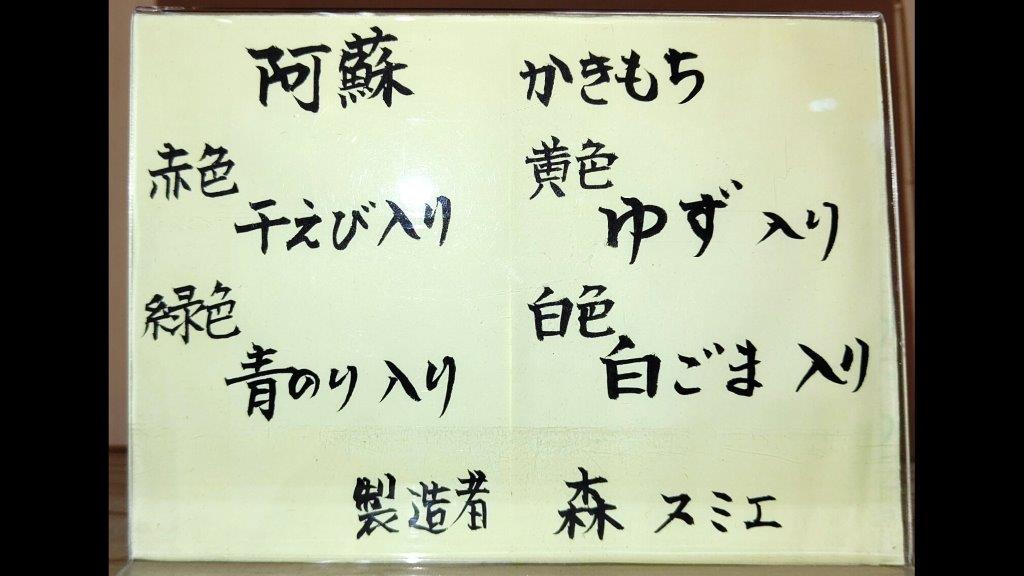 阿蘇 かきもち
赤色
干えび入り
黄色
ゆず入り
緑色
青のり入り
白色
白ごま入り
製造者 森スミエ